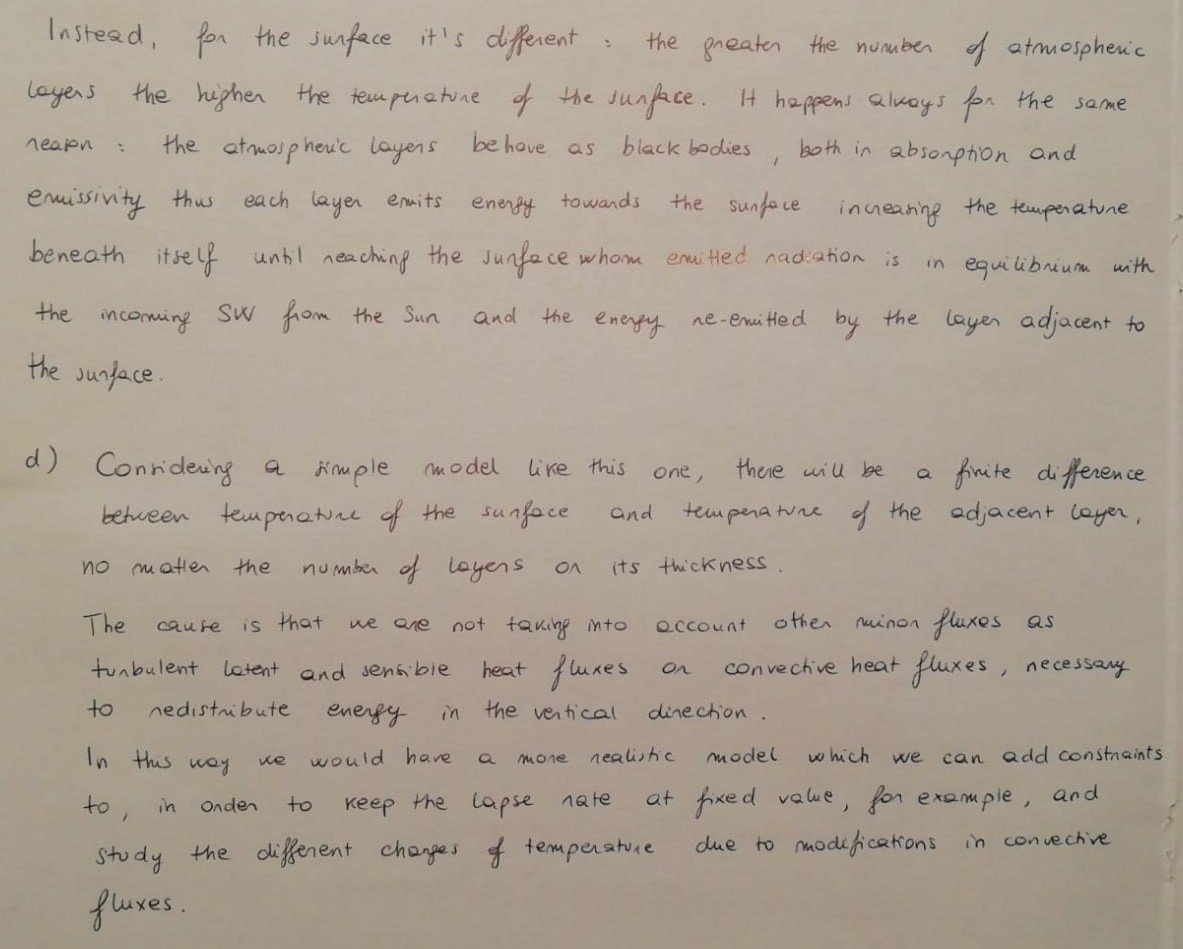 Instead, for the surface it's different : the greater the number of atmospheric
layers the higher the temperature of the surface. It happens always for the same
reason : the atmospheric layers behave as black bodies , both in absorption and
emissivity thus each layer emits energy towards the surface increasing the temperature
beneath itself until reaching the surface whom emitted radiation is in equilibrium with
the incoming SW from the Sun and the energy re-emitted by the layer adjacent to
the surface.
d) Considering a simple model like this one, there will be a finite difference
between temperature of the surface and temperature of the adjacent layer,
no matter the number of layers or its thickness.
The cause is that we are not taking into account other minor fluxes as
turbulent latent and sensible heat fluxes or convective heat fluxes, necessary
to redistribute energy in the vertical direction.
In this way we would have a more realistic model which we can add constraints
to, in order to keep the lapse rate at fixed value, for example, and
study the different changes of temperature due to modifications in convective
fluxes.